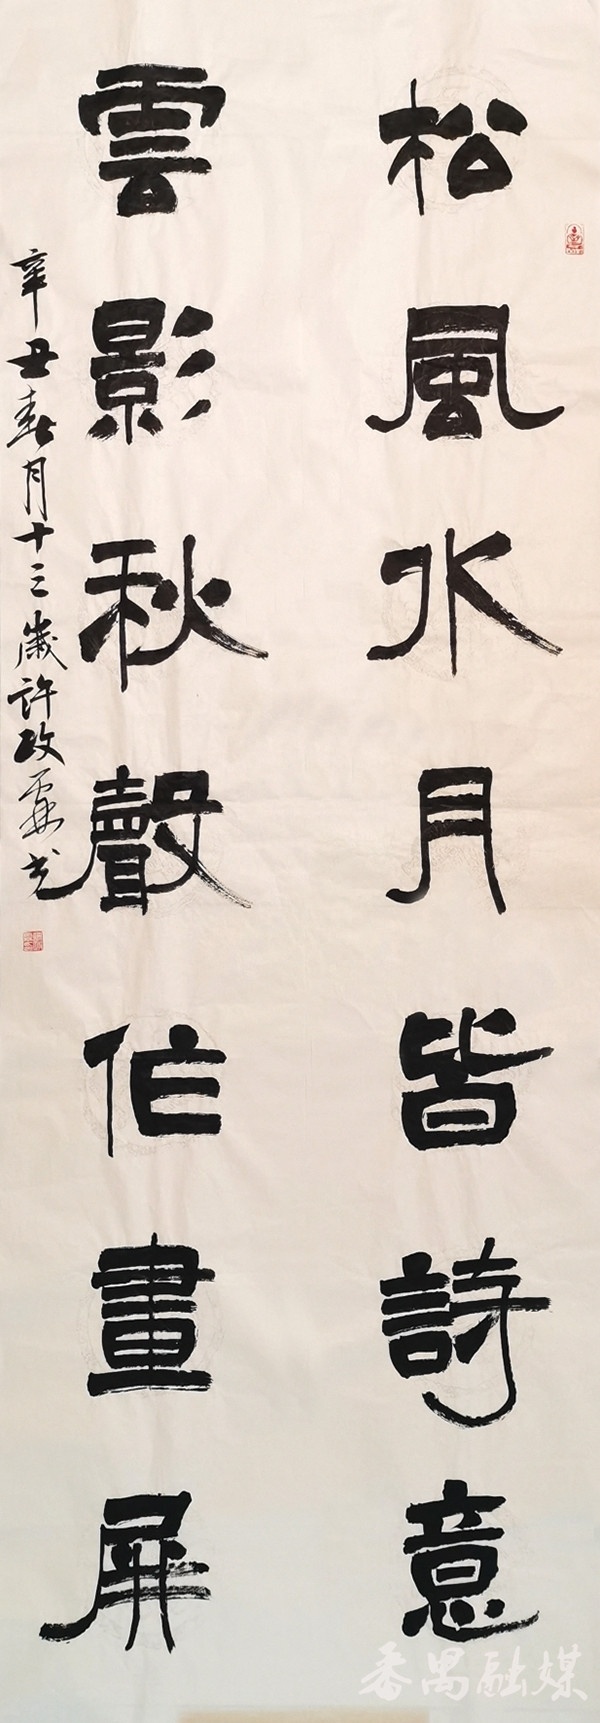 松風水月皆詩意
雲影秋聲作畫屏
辛丑春月十三歲許政霖书
番禺融媒